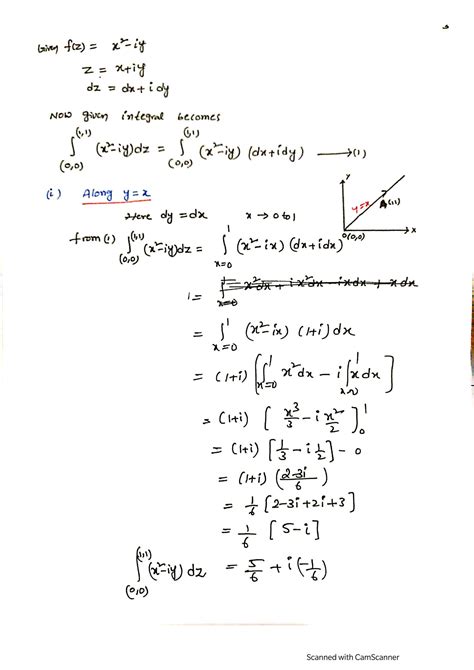 Given f(z) = x²-iy
z = x+iy
dz = dx + i dy
Now given integral becomes
∫_(0,0)^(1,1) (x²-iy)dz = ∫_(0,0)^(1,1) (x²-iy) (dx+idy) →(1)
(i) Along y=x
Here dy=dx x → 0 to 1
Y
y=x
A(1,1)
O(0,0)
X
from (1) ∫_(0,0)^(1,1) (x²-iy)dz = ∫_{x=0}^1 (x²-ix) (dx+idx)
= ∫_{x=0}^1 x²dx + ix²dx - ixdx + xdx
= ∫_{x=0}^1 (x²-ix) (1+i)dx
= (1+i) [∫_{x=0}^1 x²dx - i∫_{x=0}^1 xdx]
= (1+i) [x³/3 - i x²/2]_0^1
= (1+i) [1/3 - i 1/2] - 0
= (1+i) (2-3i/6)
= 1/6 [2-3i+2i+3]
= 1/6 [5-i]
∫_(0,0)^(1,1) (x²-iy) dz = 5/6 + i(-1/6)
Scanned with CamScanner